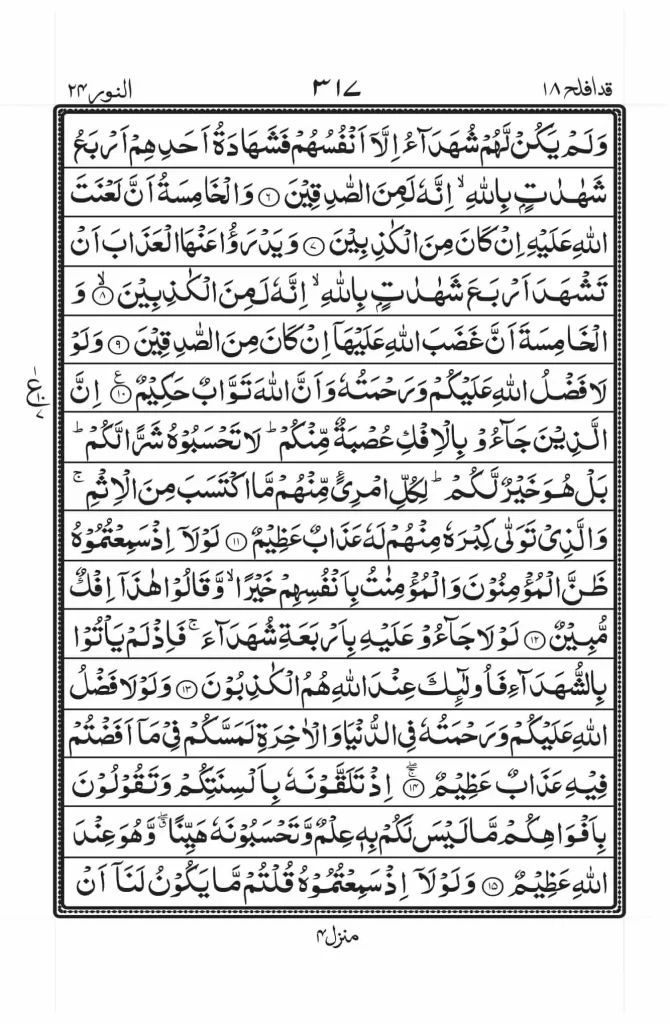 قد افلح ۱۸ ۳۱۷ النور ۲۴
وَلَمۡ يَكُنۡ لَّهُمۡ شُهَدَآءُ اِلَّاۤ اَنۡفُسُهُمۡ فَشَهَادَةُ اَحَدِهِمۡ اَرۡبَعُ
شَهٰدٰتٍۭ بِاللّٰهِ‌ۙ اِنَّهٗ لَمِنَ الصّٰدِقِيۡنَ ﴿۶﴾ وَالۡخَامِسَةُ اَنَّ لَعۡنَتَ
اللّٰهِ عَلَيۡهِ اِنۡ كَانَ مِنَ الۡكٰذِبِيۡنَ ﴿۷﴾ وَيَدۡرَؤُا عَنۡهَا الۡعَذَابَ اَنۡ
تَشۡهَدَ اَرۡبَعَ شَهٰدٰتٍۭ بِاللّٰهِ‌ۙ اِنَّهٗ لَمِنَ الۡكٰذِبِيۡنَۙ‏ ﴿۸﴾ وَ
الۡخَامِسَةَ اَنَّ غَضَبَ اللّٰهِ عَلَيۡهَاۤ اِنۡ كَانَ مِنَ الصّٰدِقِيۡنَ ﴿۹﴾ وَلَوۡ
لَا فَضۡلُ اللّٰهِ عَلَيۡكُمۡ وَرَحۡمَتُهٗ وَاَنَّ اللّٰهَ تَوَّابٌ حَكِيۡمٌ ﴿۱۰﴾ اِنَّ
ع ۱۰ ۷
الَّذِيۡنَ جَآءُوۡ بِالۡاِفۡكِ عُصۡبَةٌ مِّنۡكُمۡ‌ؕ لَا تَحۡسَبُوۡهُ شَرًّا لَّكُمۡ‌ؕ
بَلۡ هُوَ خَيۡرٌ لَّكُمۡ‌ؕ لِكُلِّ امۡرِىٴٍ مِّنۡهُمۡ مَّا اكۡتَسَبَ مِنَ الۡاِثۡمِ‌ۚ
وَالَّذِىۡ تَوَلّٰى كِبۡرَهٗ مِنۡهُمۡ لَهٗ عَذَابٌ عَظِيۡمٌ ﴿۱۱﴾ لَوۡلَاۤ اِذۡ سَمِعۡتُمُوۡهُ
ظَنَّ الۡمُؤۡمِنُوۡنَ وَالۡمُؤۡمِنٰتُ بِاَنۡفُسِهِمۡ خَيۡرًاۙ وَّقَالُوۡا هٰذَاۤ اِفۡكٌ
مُّبِيۡنٌ ﴿۱۲﴾ لَوۡلَا جَآءُوۡ عَلَيۡهِ بِاَرۡبَعَةِ شُهَدَآءَ‌ۚ فَاِذۡ لَمۡ يَاۡتُوۡا
بِالشُّهَدَآءِ فَاُولٰٓٮِٕكَ عِنۡدَ اللّٰهِ هُمُ الۡكٰذِبُوۡنَ ﴿۱۳﴾ وَلَوۡلَا فَضۡلُ
اللّٰهِ عَلَيۡكُمۡ وَرَحۡمَتُهٗ فِى الدُّنۡيَا وَالۡاٰخِرَةِ لَمَسَّكُمۡ فِىۡ مَاۤ اَفَضۡتُمۡ
فِيۡهِ عَذَابٌ عَظِيۡمٌ ۖۚ‏ ﴿۱۴﴾ اِذۡ تَلَقَّوۡنَهٗ بِاَلۡسِنَتِكُمۡ وَتَقُوۡلُوۡنَ
بِاَفۡوَاهِكُمۡ مَّا لَيۡسَ لَكُمۡ بِهٖ عِلۡمٌ وَّتَحۡسَبُوۡنَهٗ هَيِّنًا‌ۖ وَّهُوَ عِنۡدَ
اللّٰهِ عَظِيۡمٌ ﴿۱۵﴾ وَلَوۡلَاۤ اِذۡ سَمِعۡتُمُوۡهُ قُلۡتُمۡ مَّا يَكُوۡنُ لَنَاۤ اَنۡ
منزل ۴